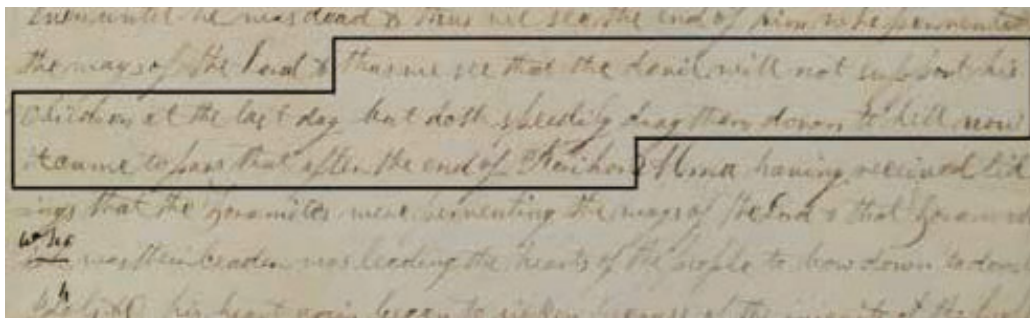 even until he was dead & thus we see the end of him who perverteth
the ways of the Lord & thus we see that the devil will not support his
children at the last day but doth speedily drag them down to hell now
it came to pass that after the end of Korihor Alma having received tid
ings that the zoramites were perverting the ways of the Lord & that
who was their leader was leading the hearts of the people to bow down to dumb
his heart again began to sicken because of the iniquity of the